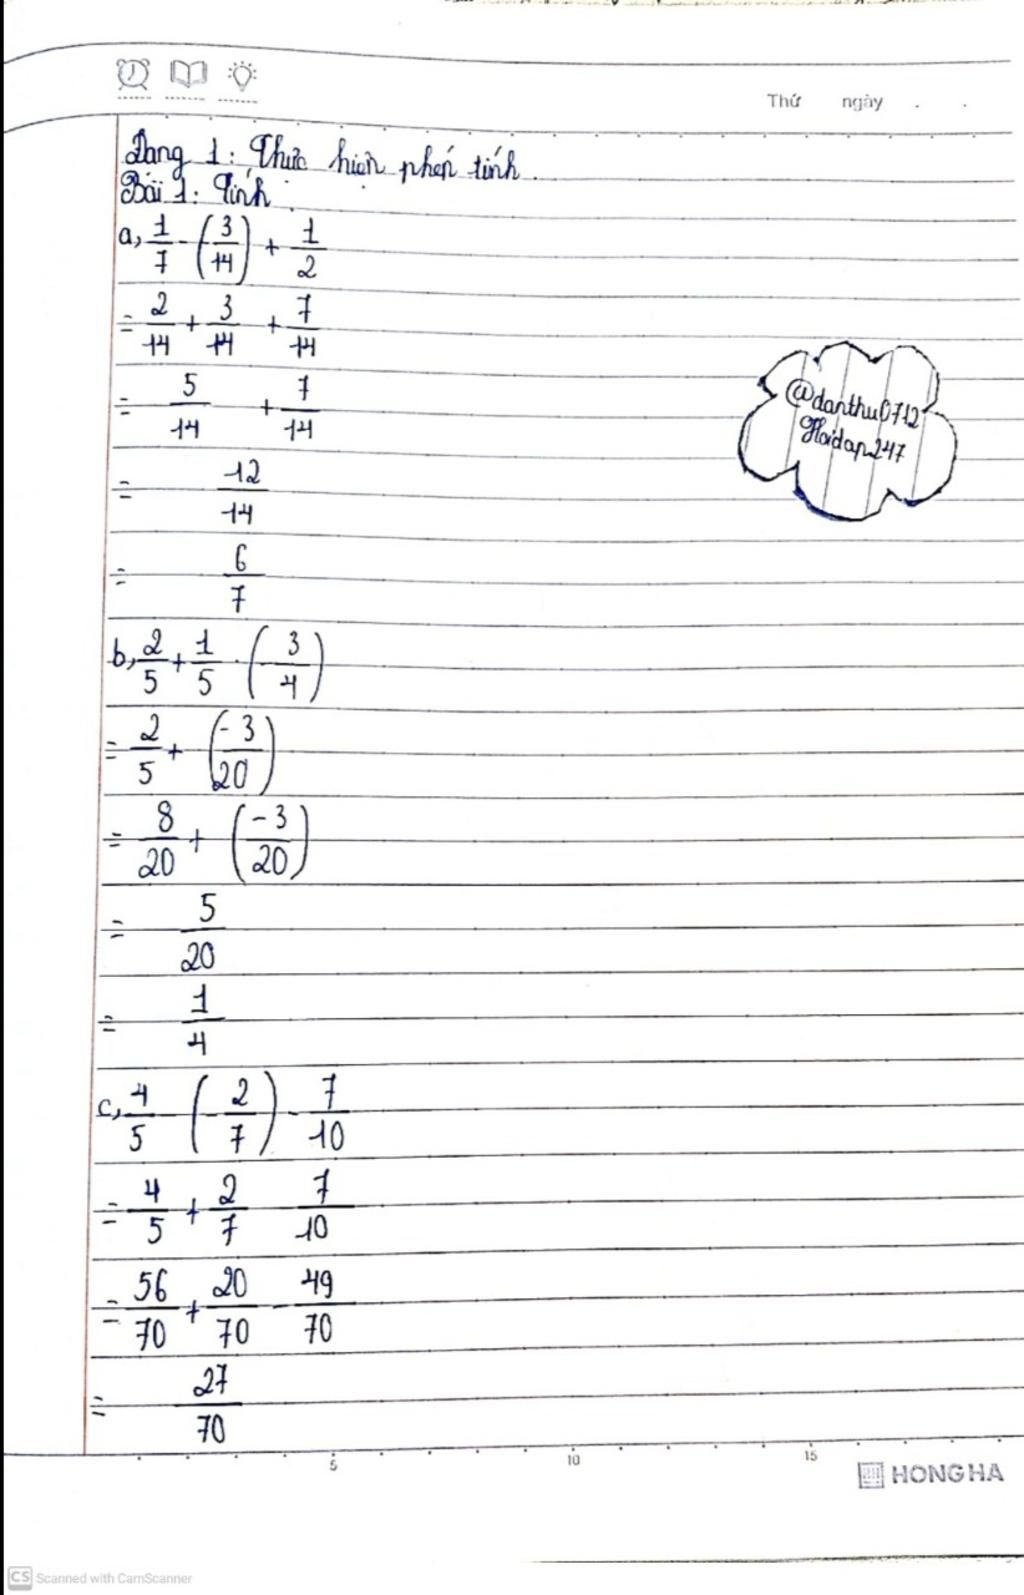 Thứ ngày
Dạng 1: Thực hiện phép tính.
Bài 1: Tính
a, 1/7 - (3/14) + 1/2
= 2/14 + 3/14 + 7/14
= 5/14 + 7/14
@danthu0712
Hoidap247
= 12/14
= 6/7
b, 2/5 + 1/5 . (-3/4)
= 2/5 + (-3/20)
= 8/20 + (-3/20)
= 5/20
= 1/4
c, 4/5 - (-2/7) - 7/10
= 4/5 + 2/7 - 7/10
= 56/70 + 20/70 - 49/70
= 27/70
5 10 15
HONG HA
CS Scanned with CamScanner